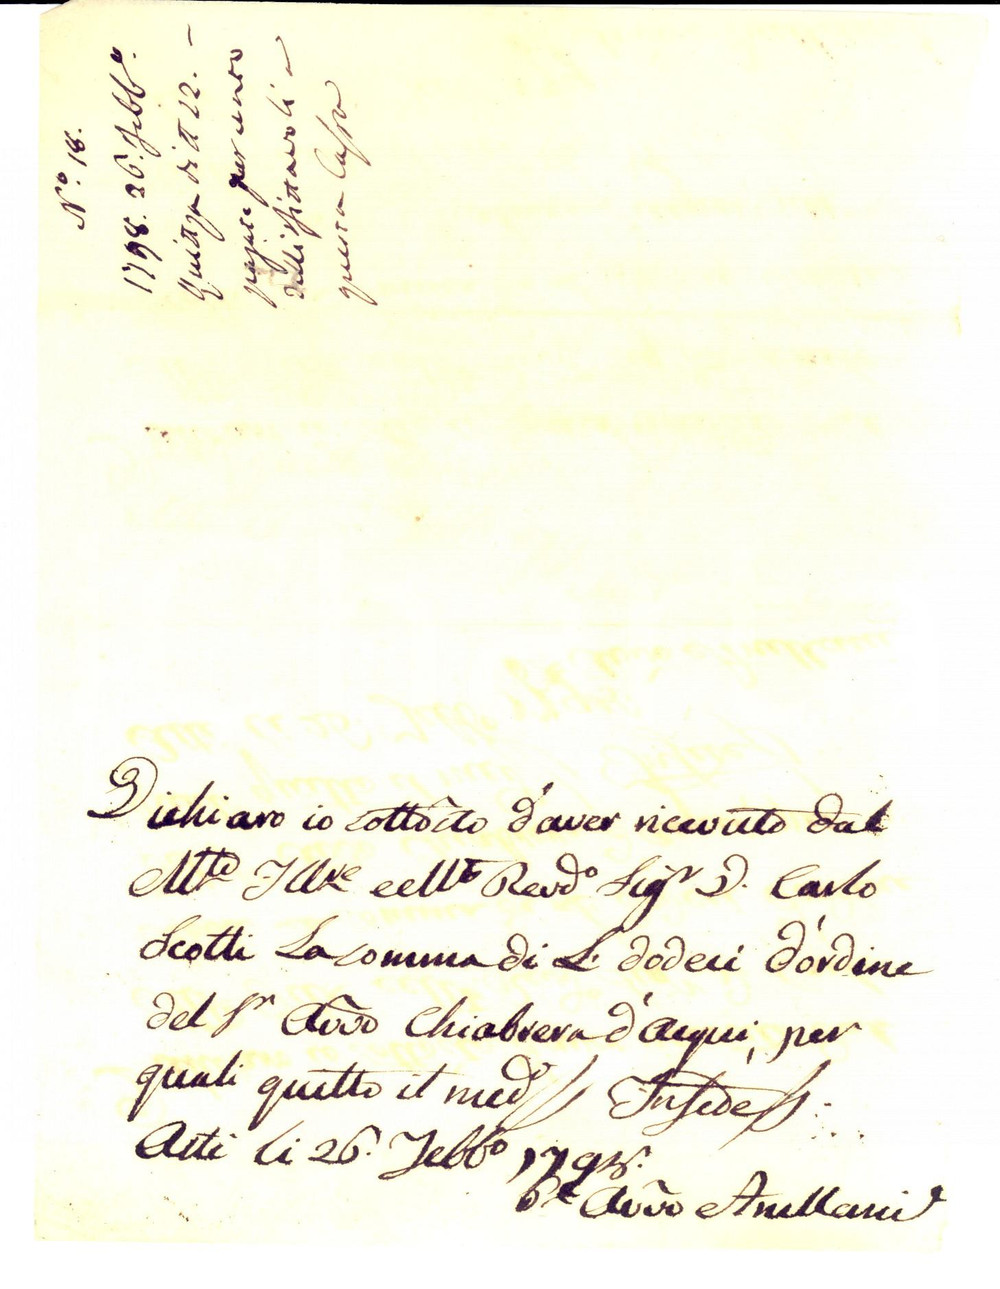 N.° 18.
1798. 26. Febb.°
Quittza di # 12. –
pagate per conto
delli Fittavoli a
questa Cassa
Dichiaro io sottõcto d'aver ricevuto dal
Mto Illre e Mto Revdo Sigr D. Carlo
Scotti La somma di L. dodeci d'ordine
del Sr Avõo Chiabrera d'Acqui, per
quali quitto il medo Infede
Asti li 26. Febbo 1798.
Avõo